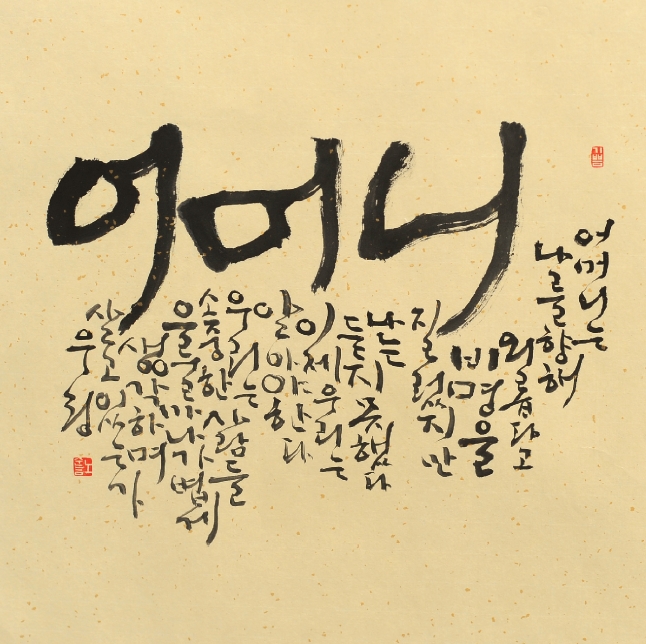 어머니
어머니는
나를 향해
외롭다고
비명을
질렀지만
나는
듣지 못했다
이제 우리는
알아야 한다
우리는
소중한 사람들
을 얼마나 가볍게
생각하며
살고 있는가